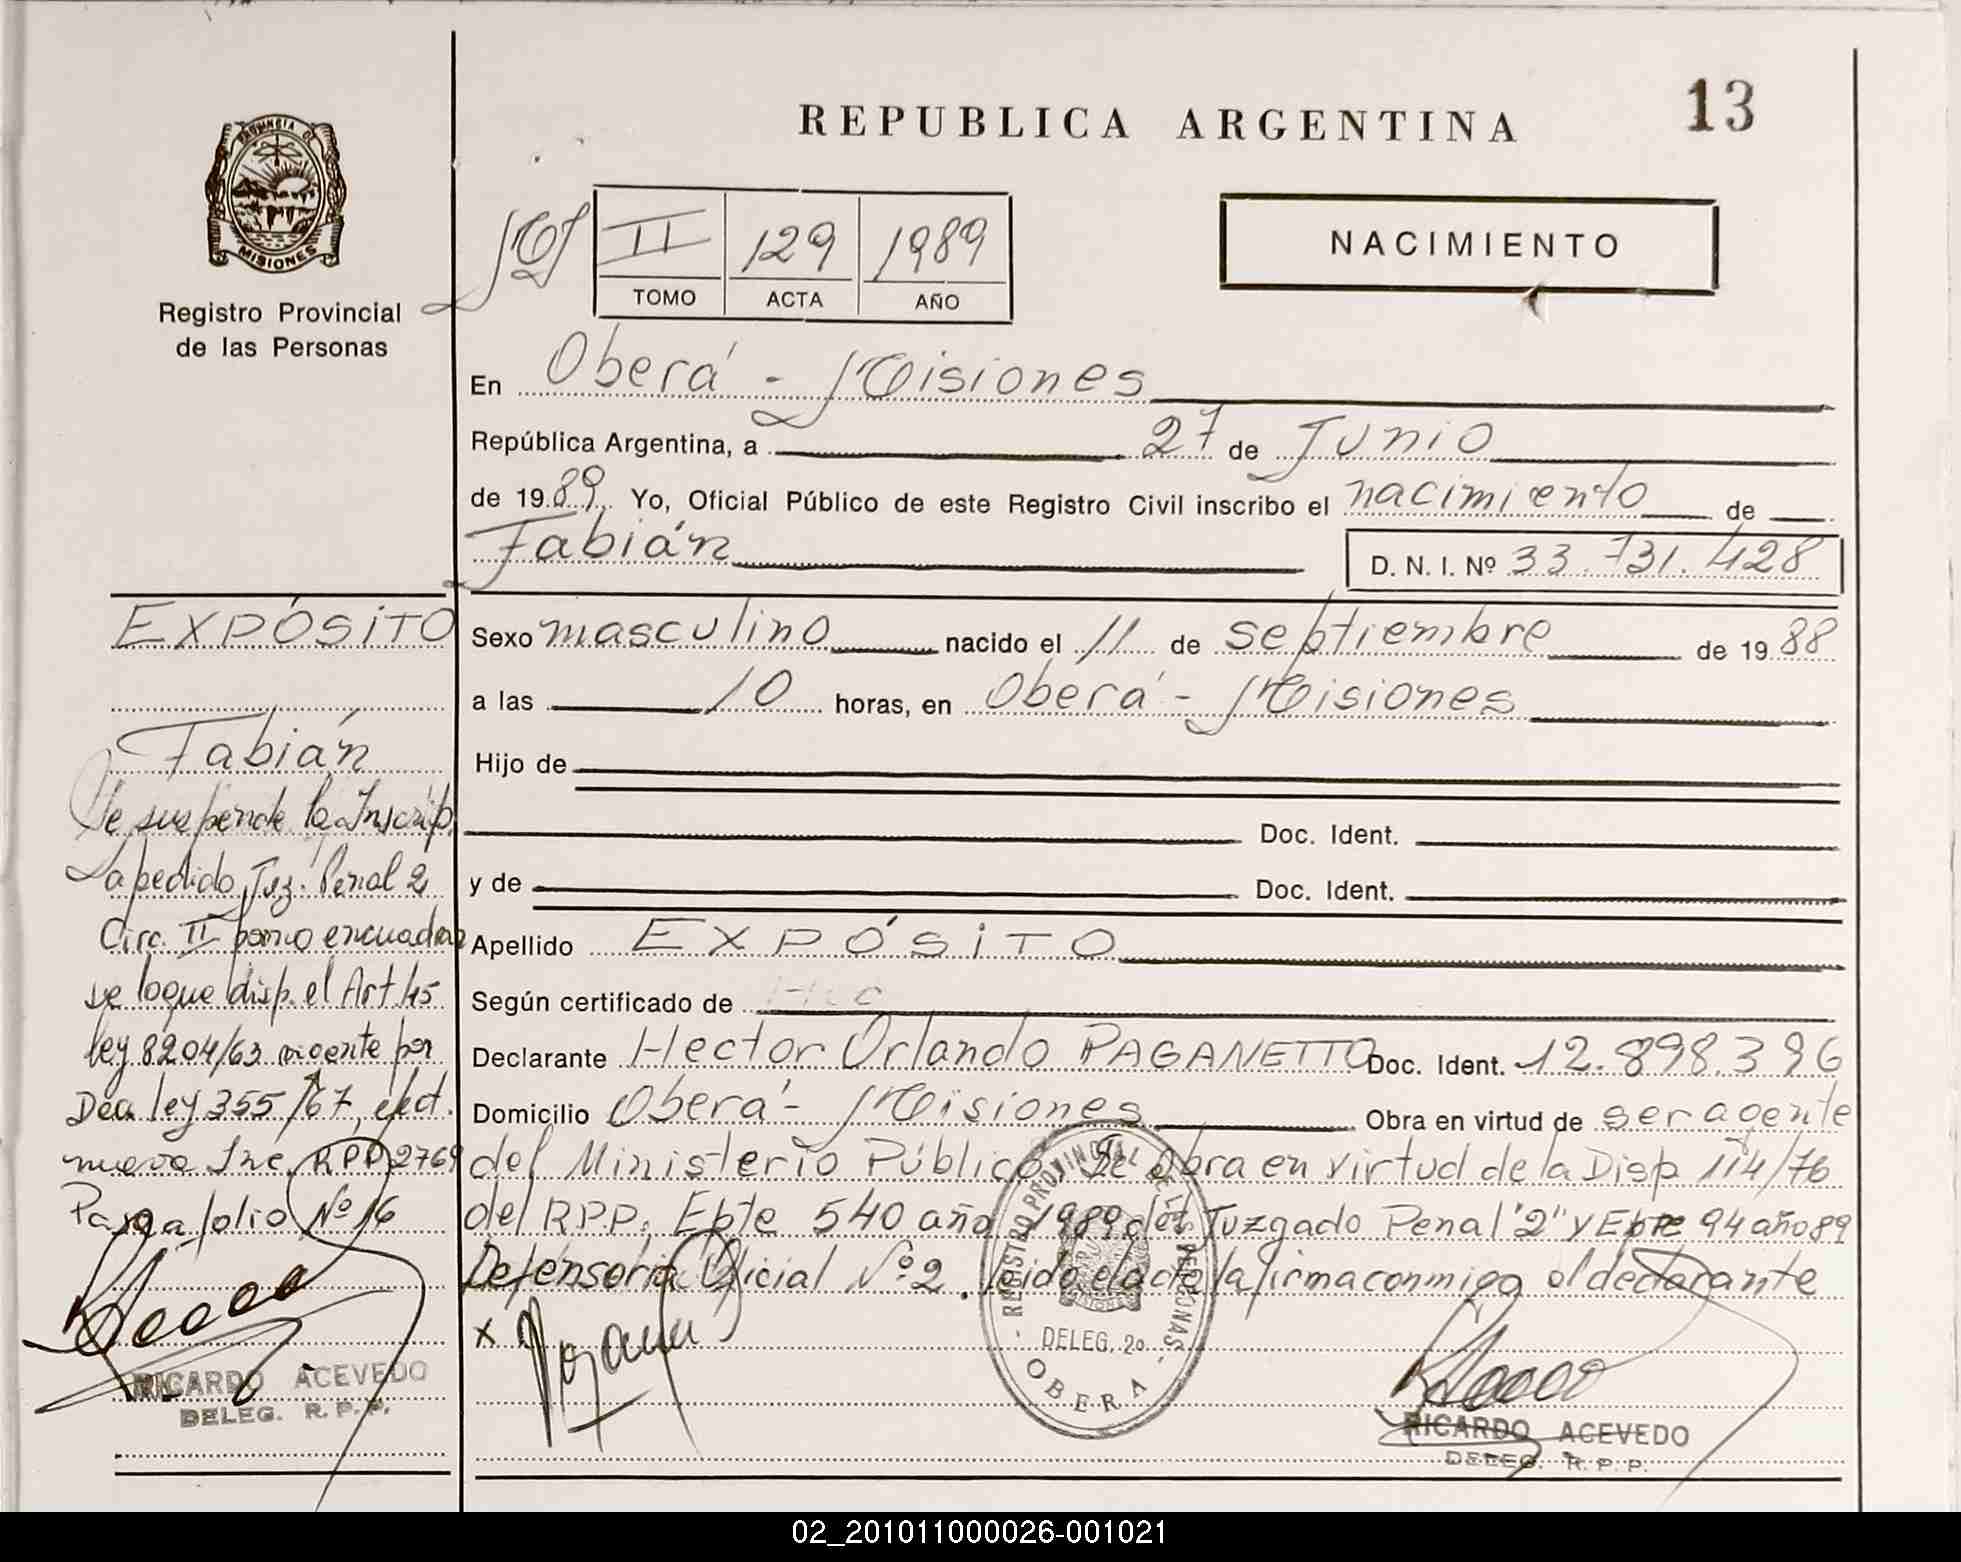 REPUBLICA ARGENTINA
13
PROVINCIA DE
MISIONES
Registro Provincial
de las Personas
II 129 1989
TOMO ACTA AÑO
NACIMIENTO
En Oberá - Misiones
República Argentina, a 27 de Junio
de 1989 Yo, Oficial Público de este Registro Civil inscribo el nacimiento de
Fabián D. N. I. Nº 33.731.428
EXPÓSiTO
Fabián
Se suspende la Inscrip.
a pedido Juz. Penal 2
Circ. II encuadrar
se loque disp. el Art 45
ley 8204/63 vigente por
Dec. ley 355/67, efect.
nueva Inc. RPP 2769
Pasa folio Nº 16
RICARDO ACEVEDO
DELEG. R.P.P.
Sexo masculino nacido el 11 de septiembre de 1988
a las 10 horas, en Oberá - Misiones
Hijo de
Doc. Ident.
y de Doc. Ident.
Apellido EXPÓSiTO
Según certificado de
Declarante Hector Orlando PAGANETTO Doc. Ident. 12.898.396
Domicilio Oberá - Misiones Obra en virtud de ser agente
del Ministerio Público. Se Obra en virtud de la Disp 114/76
del R.P.P. Epte 540 año 1989 del Juzgado Penal "2" y Epte 94 año 89
Defensoría Oficial Nº 2. leido el acta la firma conmigo el declarante
x
REGISTRO PROVINCIAL DE LAS PERSONAS
DELEG. 2º
OBERA
RICARDO ACEVEDO
DELEG. R.P.P.
02_201011000026-001021